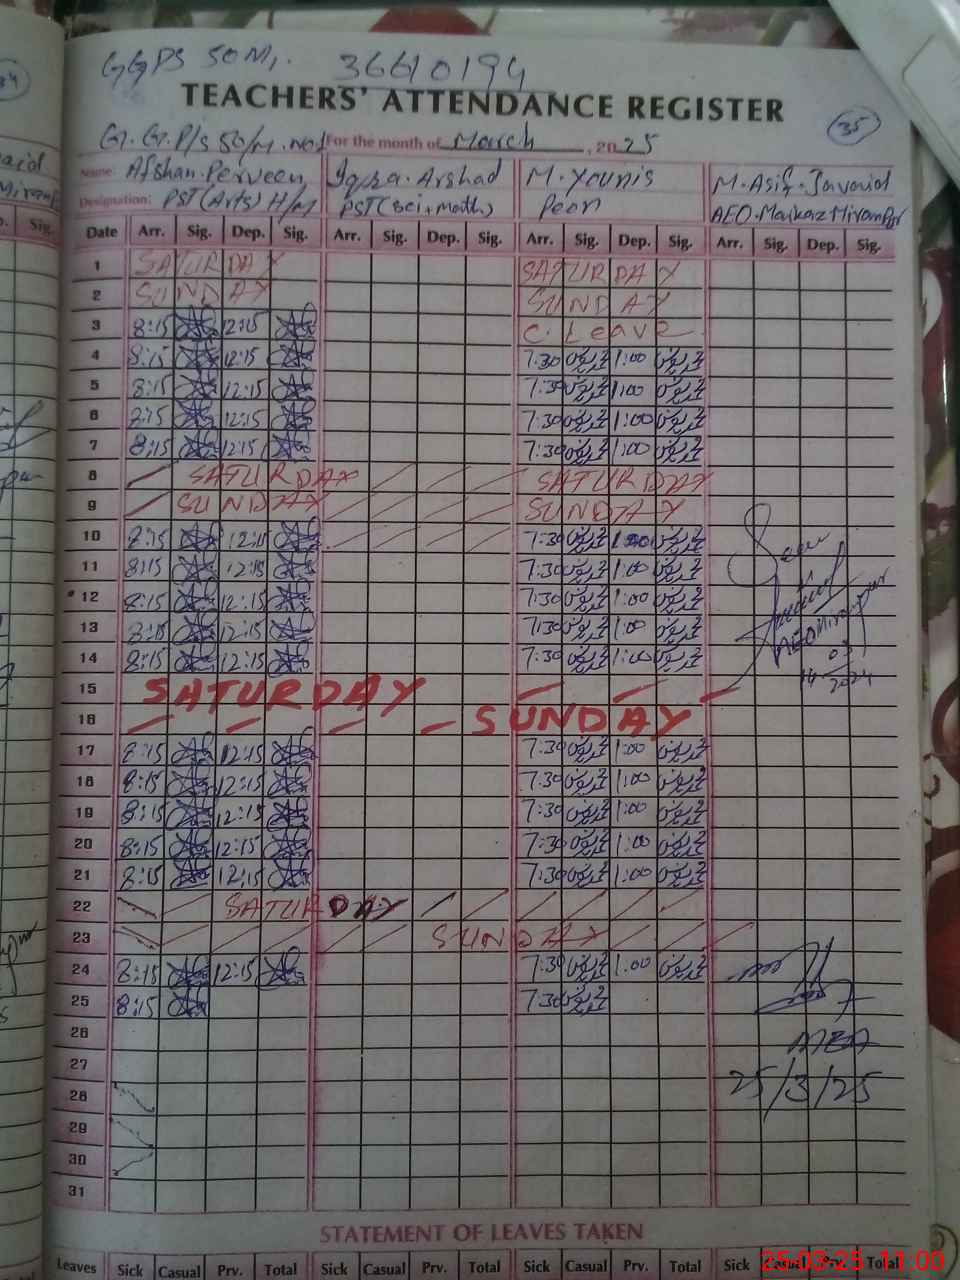 34
GGPS 50M, 36610194
TEACHERS' ATTENDANCE REGISTER
35
G.G.P/S 50/M.No1 For the month of March, 2025
Name: Afshan Perveen Iqra Arshad M. Younis M. Asif Javaid
Designation: PST (Arts) H/M PST (Sci+Math) Peon AEO Markaz Miranpur
Date Arr. Sig. Dep. Sig. Arr. Sig. Dep. Sig. Arr. Sig. Dep. Sig. Arr. Sig. Dep. Sig.
1 SATURDAY SATURDAY
2 SUNDAY SUNDAY
3 8:15 12:15 C. Leave
4 8:15 12:15 7:30 1:00
5 8:15 12:15 7:30 1:00
6 8:15 12:15 7:30 1:00
7 8:15 12:15 7:30 1:00
8 SATURDAY SATURDAY
9 SUNDAY SUNDAY
10 8:15 12:15 7:30 1:00
11 8:15 12:15 7:30 1:00
12 8:15 12:15 7:30 1:00
13 8:15 12:15 7:30 1:00
14 8:15 12:15 7:30 1:00
15 SATURDAY
16 SUNDAY
17 8:15 12:15 7:30 1:00
18 8:15 12:15 7:30 1:00
19 8:15 12:15 7:30 1:00
20 8:15 12:15 7:30 1:00
21 8:15 12:15 7:30 1:00
22 SATURDAY
23 SUNDAY
24 8:15 12:15 7:30 1:00
25 8:15 7:30
26
27
28
29
30
31
Seen
AEO Miranpur
14 03 2024
MEA
25/3/25
STATEMENT OF LEAVES TAKEN
Leaves Sick Casual Prv. Total Sick Casual Prv. Total Sick Casual Prv. Total Sick Casual Prv. Total
25-03-25 11:00